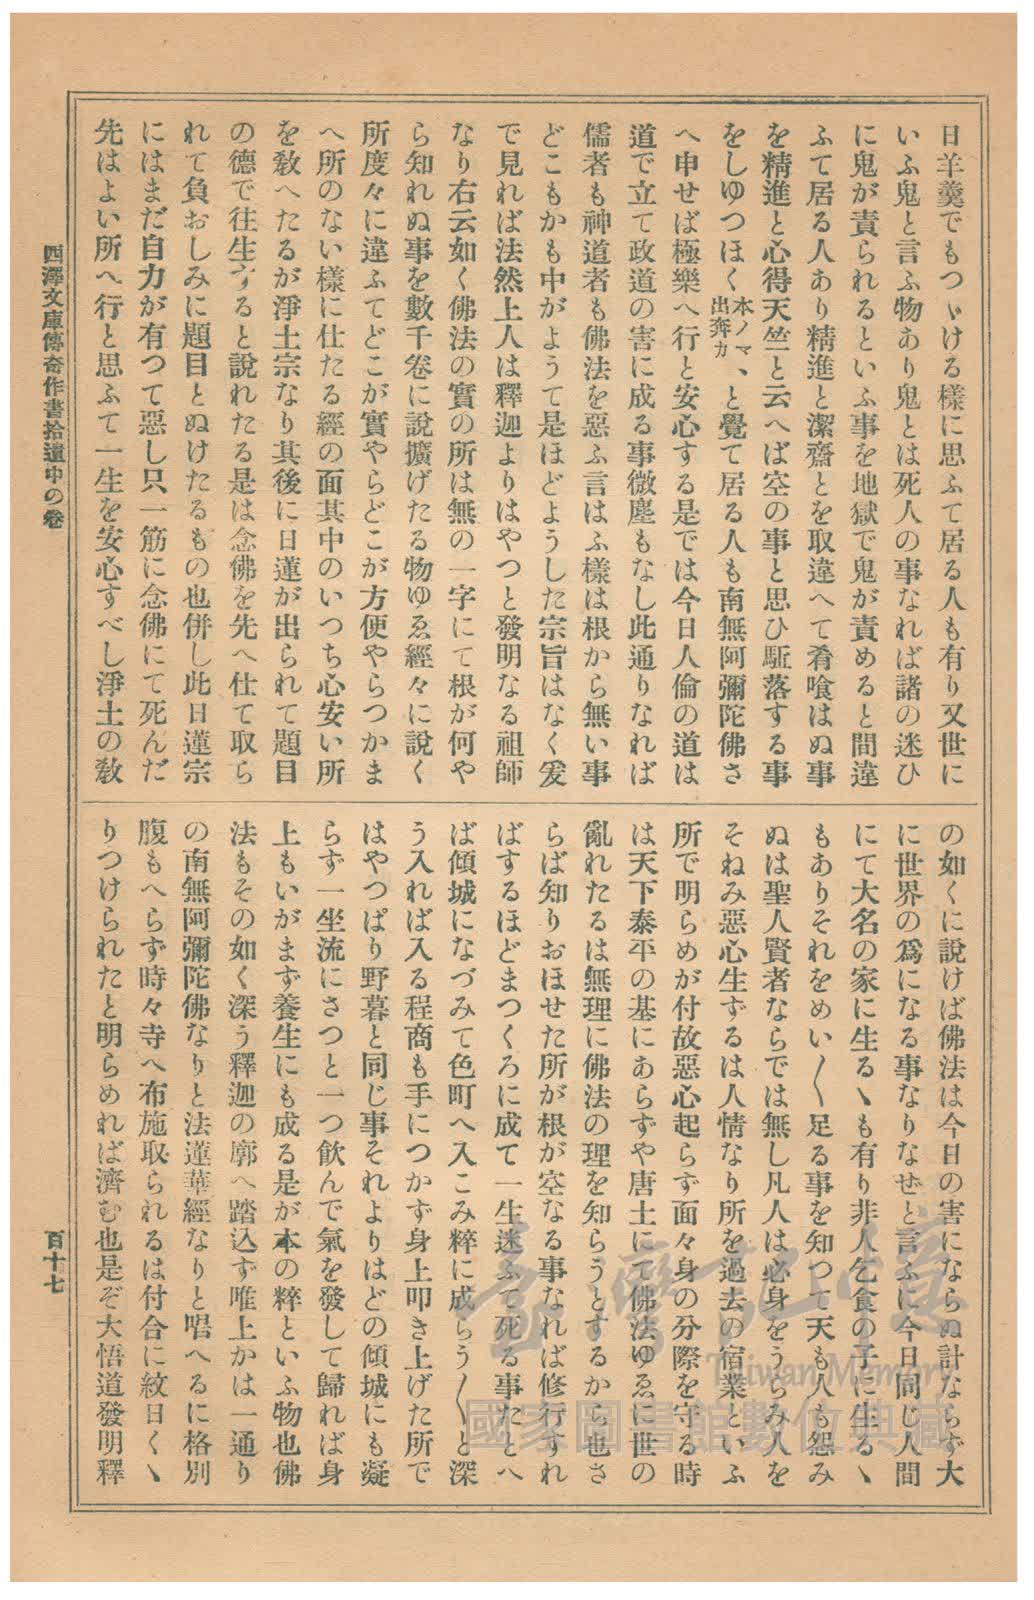 日羊羹でもつゞける樣に思ふて居る人も有り又世に
いふ鬼と言ふ物あり鬼とは死人の事なれば諸の迷ひ
に鬼が責られるといふ事を地獄で鬼が責めると間違
ふて居る人あり精進と潔齋とを取違へて肴喰はぬ事
を精進と心得天竺と云へば空の事と思ひ駈落する事
をしゆつほく本ノマ、出奔カと覺て居る人も南無阿彌陀佛さ
へ申せば極樂へ行と安心する是では今日人倫の道は
道で立て政道の害に成る事微塵もなし此通りなれば
儒者も神道者も佛法を惡ふ言はふ樣は根から無い事
どこもかも中がようて是ほどようした宗旨はなく爰
で見れば法然上人は釋迦よりはやつと發明なる祖師
なり右云如く佛法の實の所は無の一字にて根が何や
ら知れぬ事を數千卷に說擴げたる物ゆゑ經々に說く
所度々に違ふてどこが實やらどこが方便やらつかま
へ所のない樣に仕たる經の面其中のいつち心安い所
を敎へたるが淨土宗なり其後に日蓮が出られて題目
の德で往生すると說れたる是は念佛を先へ仕て取ら
れて負おしみに題目とぬけたるもの也併し此日蓮宗
にはまだ自力が有つて惡し只一筋に念佛にて死んだ
先はよい所へ行と思ふて一生を安心すべし淨土の敎
の如くに說けば佛法は今日の害にならぬ計ならず大
に世界の爲になる事なりなぜと言ふに今日同じ人間
にて大名の家に生るゝも有り非人乞食の子に生るゝ
もありそれをめい〳〵足る事を知つて天も人も怨み
ぬは聖人賢者ならでは無し凡人は必身をうらみ人を
そねみ惡心生ずるは人情なり所を過去の宿業といふ
所で明らめが付故惡心起らず面々身の分際を守る時
は天下泰平の基にあらずや唐土にて佛法ゆゑに世の
亂れたるは無理に佛法の理を知らうとするから也さ
らば知りおほせた所が根が空なる事なれば修行すれ
ばするほどまつくろに成て一生迷ふて死る事たとへ
ば傾城になづみて色町へ入こみ粹に成らう〳〵と深
う入れば入る程商も手につかず身上叩き上げた所で
はやつぱり野暮と同じ事それよりはどの傾城にも凝
らず一坐流にさつと一つ飮んで氣を發して歸れば身
上もいがまず養生にも成る是が本の粹といふ物也佛
法もその如く深う釋迦の廓へ踏込ず唯上かは一通り
の南無阿彌陀佛なりと法蓮華經なりと唱へるに格別
腹もへらず時々寺へ布施取られるは付合に紋日くゝ
りつけられたと明らめれば濟む也是ぞ大悟道發明釋
四澤文庫傳奇作書拾遺中の卷
百十七
臺灣記憶
Taiwan Memory
國家圖書館數位典藏